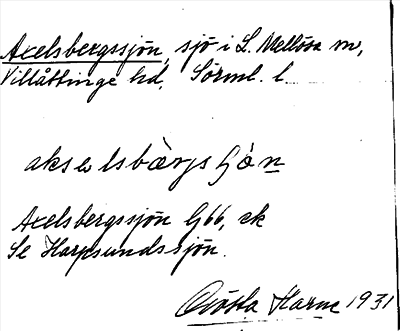 Axelsbergssjön, sjö i L. Mellösa sn,
Villåttinge hd, Sörml. l.
Axelsbergssjön G66, ek
Se Harpsundssjön.
Gösta Karne 1931